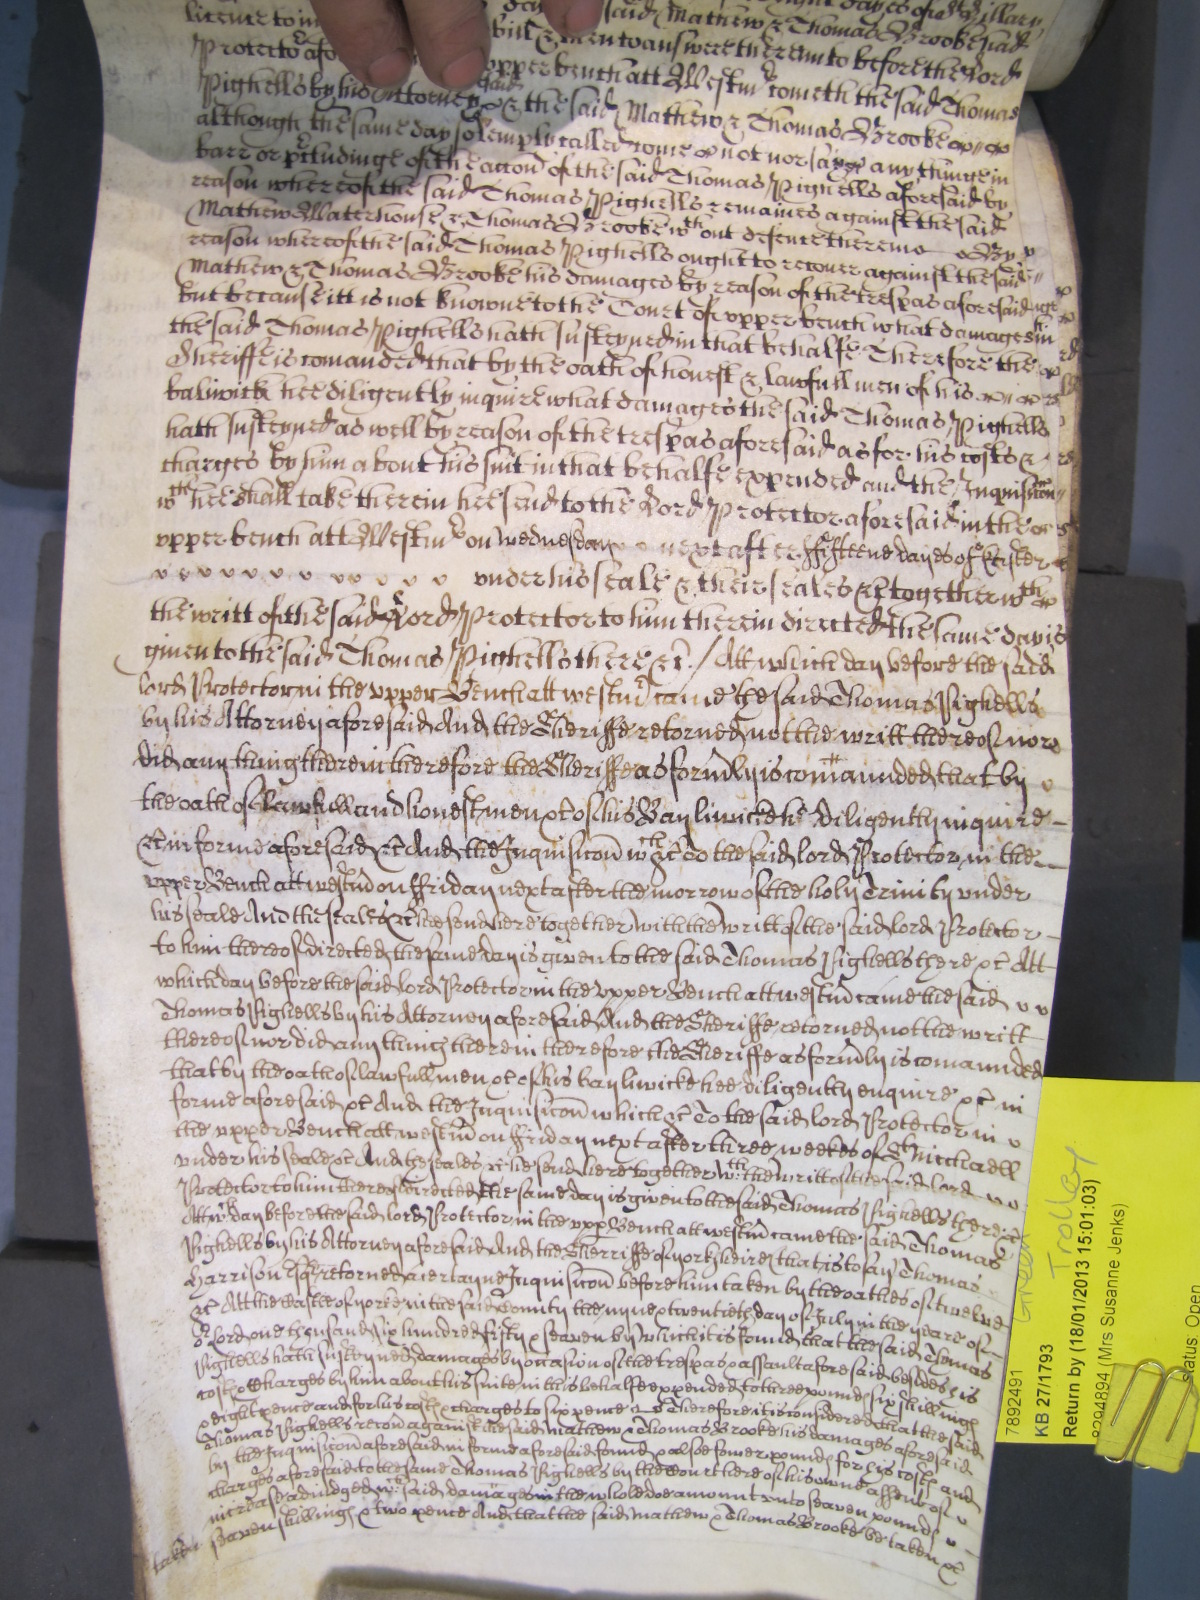 licence to
said Mathew & Thomas Brooke had
Protector afo bill & then to answere therein to before the Lord
upper bench att Westmr cometh the said Thomas
Pighells by his Attorney & the said Mathew & Thomas Brooke
although the same day solemply called come not nor say any thinge in
barr or pcludinge of the accon of the said Thomas Pighells aforesaid by
reason whereof the said Thomas Pighells remaines against the said
Mathew Waterhouse & Thomas Brooke wthout defence therein By
reason whereof the said Thomas Pighells ought to recover against the said
Mathew & Thomas Brooke his damages by reason of the trespas aforesaid
but because itt is not knowne to the Court of upper bench what damages
the said Thomas Pighells hath susteyned in that behalfe Therefore the
Sheriffe is comanded that by the oath of honest & lawfull men of his
baliwick hee diligently inquire what damages the said Thomas Pighells
hath susteyned as well by reason of the trespas aforesaid as for his costs &
charges by him about his suit in that behalfe expended and the Inquisicon
wch hee shall take therein hee send to the Lord Protector aforesaid in the
upper bench att Westmr on Wednesday next after fifteene dayes of Easter
under his seale & their seales &c together wth
the writt of the said Lord Protector to him therein directed the same day is
given to the said Thomas Pighells there &c / Att which day before the said
lord Protector in the upper Bench att westmr came the said Thomas Pighells
by his Attorney aforesaid And the Sheriffe retorned not the writt thereof nor
did any thing therein therefore the Sheriffe as formly is comaunded that by
the oath of lawfull and honest men &c of his Bayliwicke he diligently inquire
&c in forme aforesaid &c And the Inquisicon wch &c to the said lord Protector in the
upper Bench att westmr on ffriday next after the morrow of the holy Trinity under
his seale And the seales &c he send here together with the writt of the said lord Protector
to him thereof directed the same day is given to the said Thomas Pighells there &c Att
which day before the said lord Protector in the upper Bench att westmr came the said
Thomas Pighells by his Attorney aforesaid And the Sheriffe retorned not the writt
thereof nor did any thing therein therefore the Sheriffe as formly is comaunded
that by the oath of lawfull men &c of his bayliwicke hee diligently enquire &c in
forme aforesaid &c And the Inquisicon which &c To the said lord Protector in
the upper Bench att westmr on ffriday next after three weekes of St Michaell
under his seale &c And the seales &c he send here together wth the writt of the said lord
Protector to him thereof directed the same day is given to the said Thomas Pighells there &c
Att wch day before the said lord Protector in the upp Bench att westmr came the said Thomas
Pighells by his Attorney aforesaid And the Sherriffe of yorkesheire that is to say Thomas
Harrison Esqr retorned a certayne Inquisicon before him taken by the oathes of twelve
&c Att the Castle of yorke in the said County the nyne & twentieth day of July in the yeare of
or Lord one thousand six hundred fifty & seaven by which itt is found that the said Thomas
Pighells hath susteyned damages by occasion of the trespas & assault aforesaid besides his
costs & charges by him about his suite in this behalfe expended to three pounds six shillings
& eight pence and for his costs & charges to six pence &c Therefore it is considered that the said
Thomas Pighells recov against the said Mathew & Thomas Brooke his damages aforesaid
by the Inquisicon aforesaid in forme aforesaid found & alsoe fower pounds for his costs and
charges aforesaid to the same Thomas Pighells by the Court here of his owne assent of
increase adiudged wch said damages in the whole doe amount unto seaven pounds
seaven shillings & two pence And that the said Mathew & Thomas Brooke be taken &c
Green
Trolley
7892491
KB 27/1793
Return by (18/01/2013 15:01:03)
8294894 (Mrs Susanne Jenks)
Status: Open